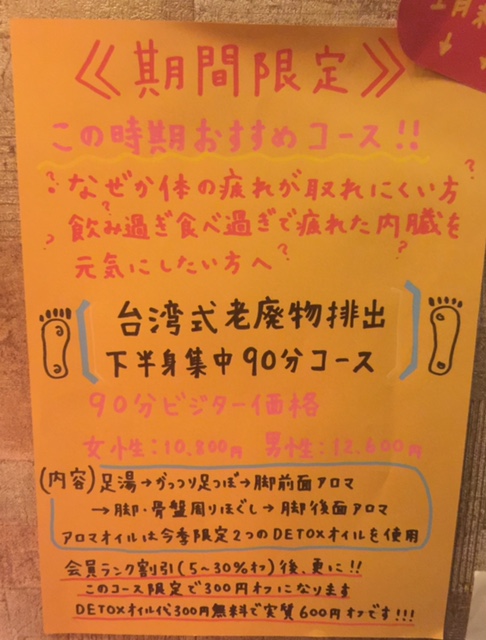 1月末
≪期間限定≫
この時期おすすめコース!!
なぜか体の疲れが取れにくい方
飲み過ぎ食べ過ぎで疲れた内臓を
元気にしたい方へ
台湾式老廃物排出
下半身集中90分コース
90分ビジター価格
女性:10,800円 男性:12,600円
(内容)足湯→がっつり足つぼ→脚前面アロマ
→脚・骨盤周りほぐし→脚後面アロマ
アロマオイルは今季限定2つのDETOXオイルを使用
会員ランク割引(5~30%オフ)後、更に!!
このコース限定で300円オフになります
DETOXオイル代300円無料で実質600円オフです!!!